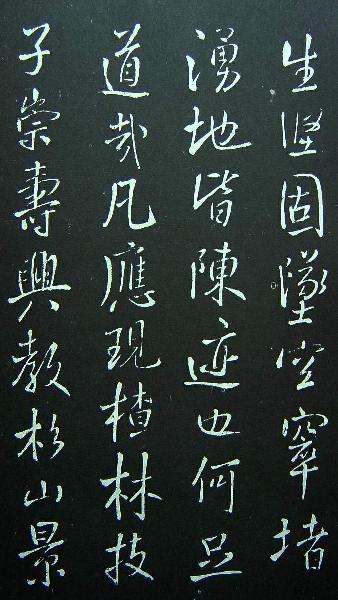 生堅固墜空窣堵
湧地皆陳迹也何足
道哉凡應現樝林技
子崇壽興教杉山景